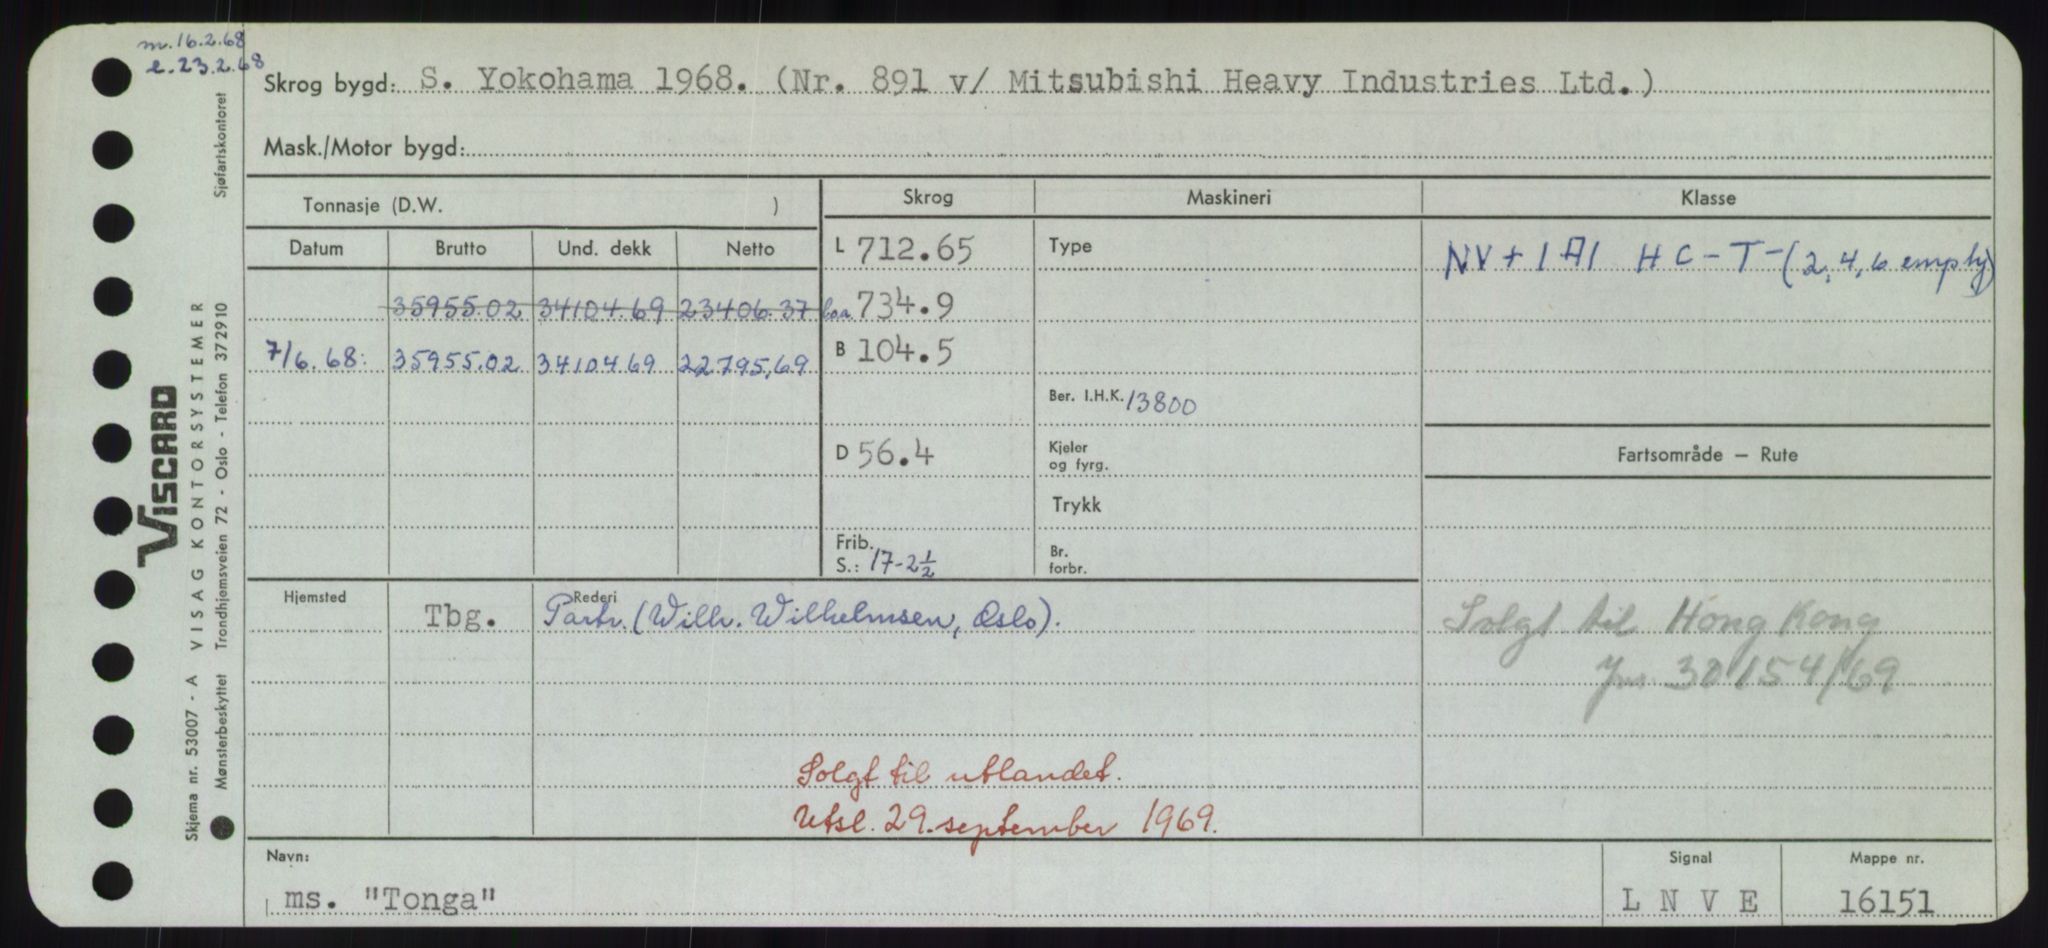 m. 16.2.68
e. 23.2.68
Skrog bygd: S. Yokohama 1968. (Nr. 891 v/ Mitsubishi Heavy Industries Ltd.)
Mask./Motor bygd:
Tonnasje (D.W. )
Skrog Maskineri Klasse
Datum Brutto Und. dekk Netto
L 712.65 Type NV + 1A1 HC-T-(2,4,6 empty)
35955.02 34104.69 23406.37 loa 734.9
7/6.68: 35955.02 34104.69 22795,69 B 104.5
Ber. I.H.K. 13800
D 56.4 Kjeler og fyrg.
Fartsområde – Rute
Trykk
Frib. S.: 17-2½ Br. forbr.
Hjemsted Tbg. Rederi
Partr. (Wilh. Wilhelmsen, Oslo).
Solgt til Hong Kong
Jnr. 30154/69
Solgt til utlandet.
Utsl. 29. september 1969.
Navn: Signal Mappe nr.
ms. "Tonga" L N V E 16151
Skjema nr. 53007 - A VISAG KONTORSYSTEMER
Mønsterbeskyttet Trondhjemsveien 72 - Oslo - Telefon 372910 Sjøfartskontoret
VISCARD